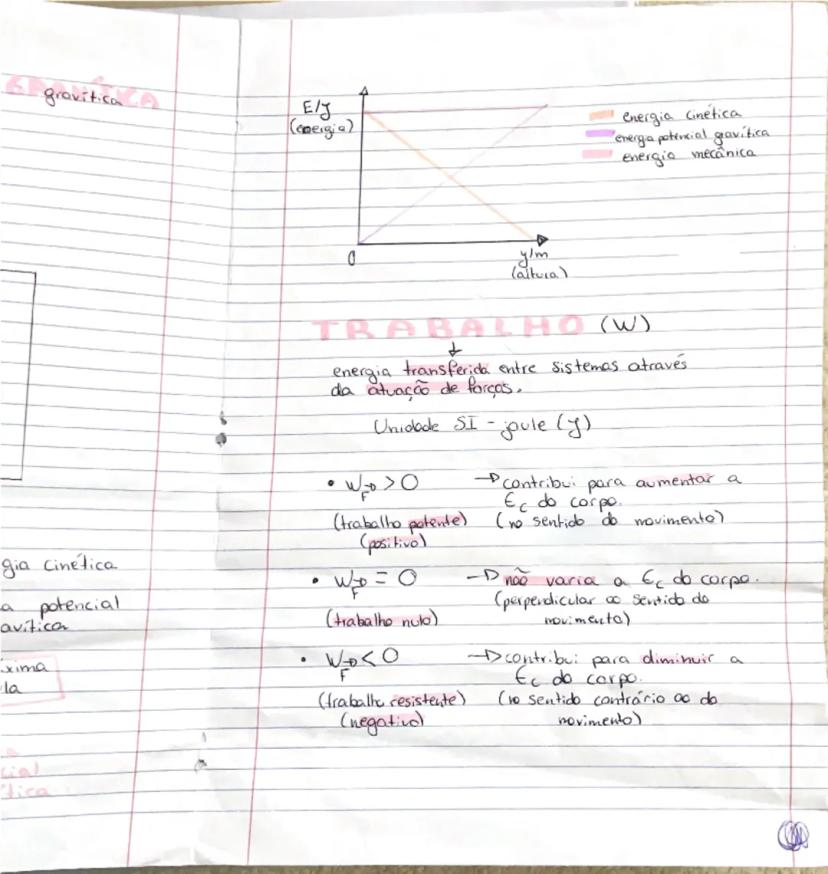 GRAVÍTICA
gravítica
gia cinética
a potencial
avítica
xima
la
cial
ítica
E/J
(energia)
energia cinética
energia potencial gravítica
energia mecânica
0
y/m
(altura)
TRABALHO (W)
energia transferida entre sistemas através
da atuação de forças.
Unidade SI - joule (J)
• W_F⃗ > 0 → contribui para aumentar a
Ec do corpo.
(trabalho potente) (no sentido do movimento)
(positivo)
• W_F⃗ = 0 → não varia a Ec do corpo.
(perpendicular ao sentido do
(trabalho nulo) movimento)
• W_F⃗ < 0 → contribui para diminuir a
Ec do corpo.
(trabalho resistente) (no sentido contrário ao do
(negativo) movimento)